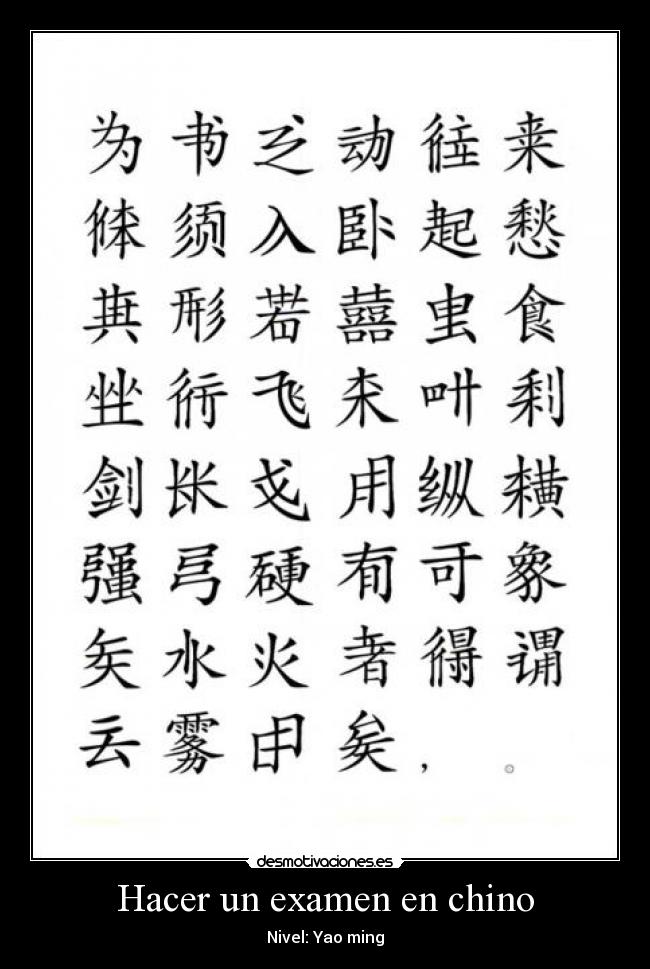 为 书 动 往 来
体 须 入 卧 起 愁
其 形 若 虫 食
坐 行 飞 木 叶 利
剑 长 戈 用 纵 横
强 弓 硬 有 可 象
矢 水 火 者 得 谓
云 雾 矣 ， 。
desmotivaciones.es
Hacer un examen en chino
Nivel: Yao ming